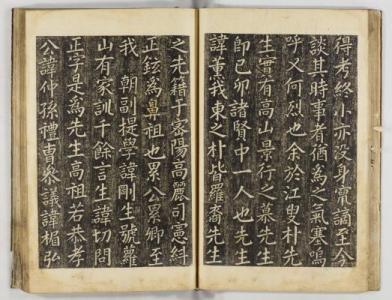 得考終小亦没身竄謫至今
談其時事者猶為之氣塞嗚
呼又何烈也余於江叟朴先
生實有高山景行之慕先生
即己卯諸賢中一人也先生
諱薰我東之朴皆羅裔先生
之先籍于密陽高麗司憲糾
正鉉為鼻祖也累公累卿至
我 朝副提學諱剛生號羅
山有家訓千餘言生諱切問
正字是為先生高祖若恭孝
公諱仲孫禮曹叅議諱楣弘